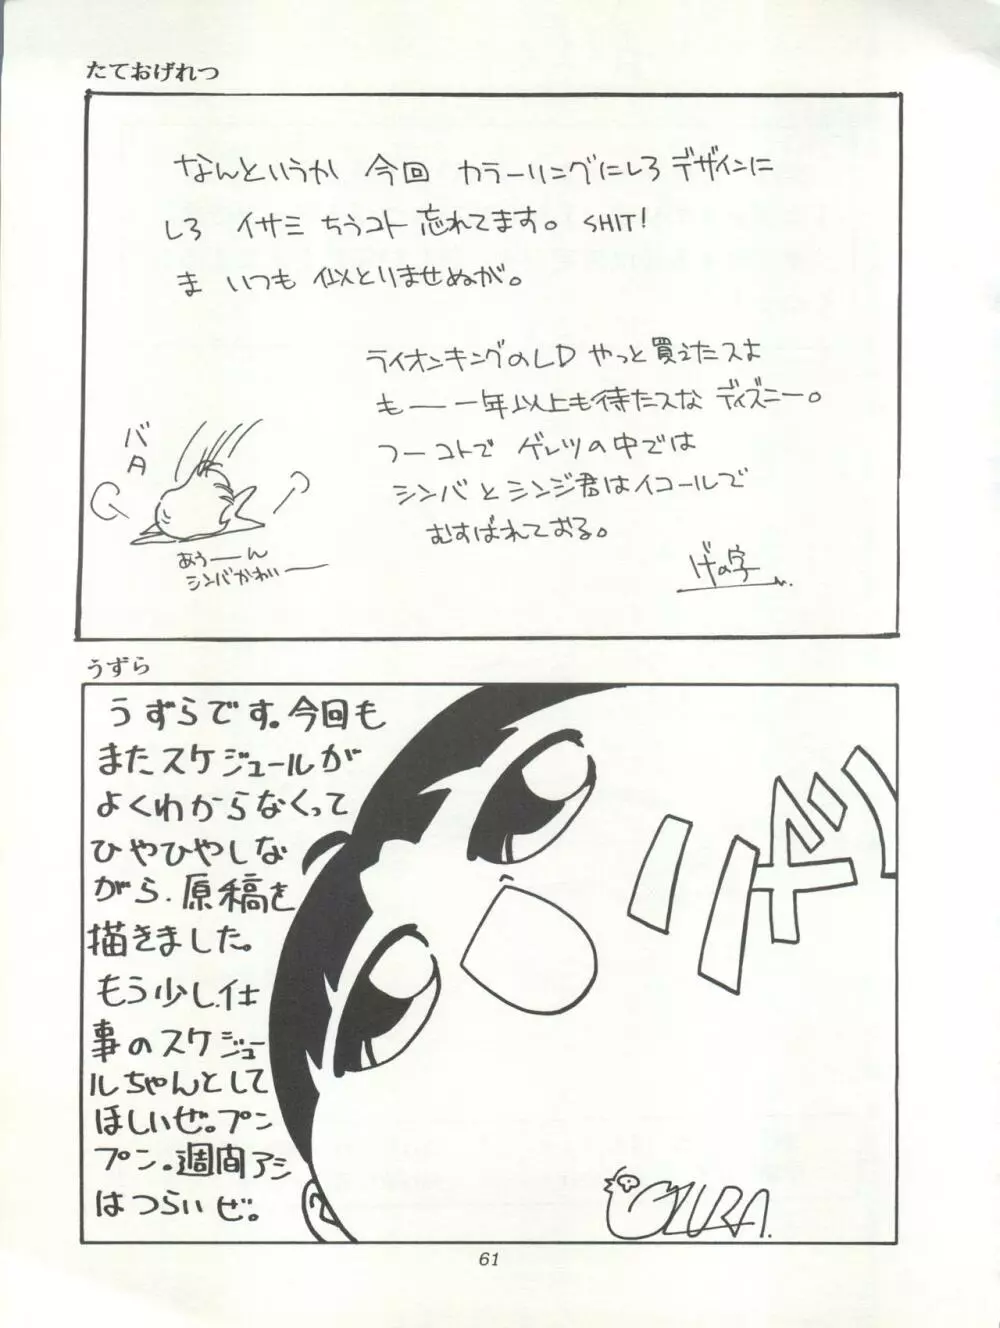 たておげれつ
なんというか 今回 カラーリングにしろ デザインに
しろ イサミ ちうコト 忘れてます。SHIT!
ま いつも 似とりませぬが。
ライオンキングのLD やっと買えたスよ
もーー一年以上も待たスな ディズニー。
つーコトで ゲレツの中では
シンバとシンジ君はイコールで
むすばれておる。
バタ
あぅーーん
シンバかわいーー
げの字
うずら
うずらです。今回も
またスケジュールが
よくわからなくって
ひやひやしな
がら、原稿を
描きました。
もう少し、仕
事のスケジュー
ルちゃんとして
ほしいぜ。プン
プン。週間アシ
はつらいぜ。
ジャン
UZURA.
61